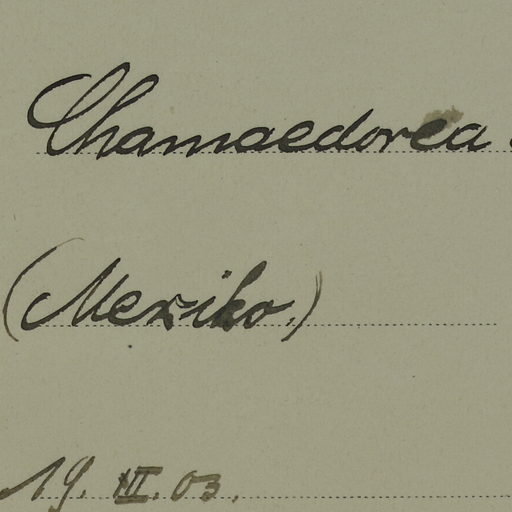 Chamaedorea
(Mexiko.)
19. III. 03.